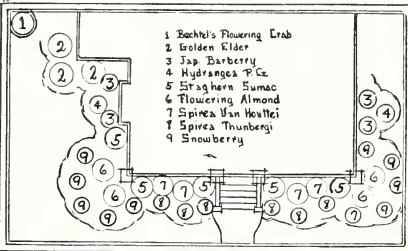 1 Bechtel's Flowering Crab
2 Golden Elder
3 Jap. Barberry
4 Hydrangea P. G.
5 Staghorn Sumac
6 Flowering Almond
7 Spirea Van Houttei
8 Spirea Thunbergi
9 Snowberry
1
2
2 2 3
4
3
5
9 9
9 6
9 6 5 7 7 5
9 9 9 8 8 8
3
3 4
9
9
6 9
5 7 7 5 6 9
8 8 6 6 7 9